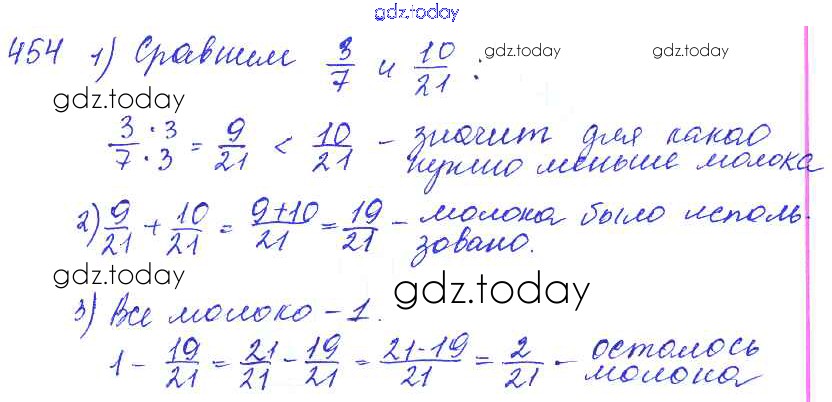 gdz.today
454 1) Сравним 3/7 и 10/21 :
gdz.today
gdz.today
3·3/7·3 = 9/21 < 10/21 – значит для какао
нужно меньше молока
2) 9/21 + 10/21 = 9+10/21 = 19/21 – молока было исполь-
зовано.
gdz.today
gdz.today
3) Все молоко – 1.
1 – 19/21 = 21/21 – 19/21 = 21-19/21 = 2/21 – осталось
молока